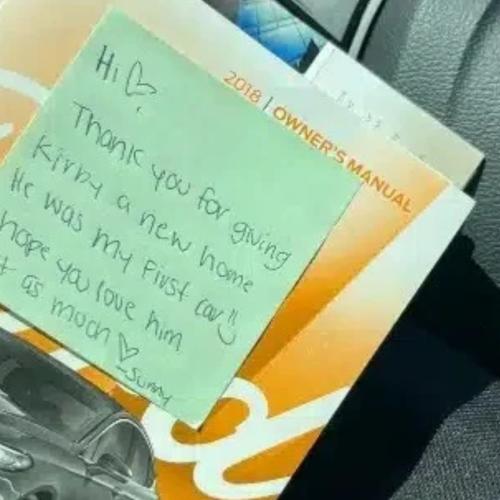 Hi ♡,
Thank you for giving
Kirby a new home
He was my first car :)
hope you love him
as much ♡
-Sunny
2018 | OWNER'S MANUAL